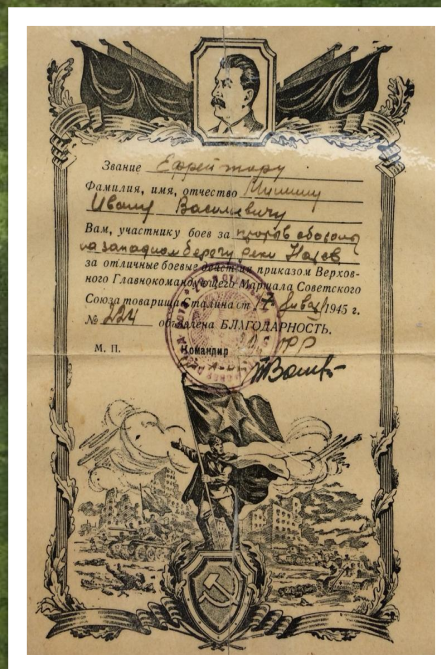 Звание Ефрейтору
Фамилия, имя, отчество
Ивану Васильевичу
Вам, участнику боев за прорыв обороны
на западном берегу реки Нарев
за отличные боевые действия приказом Верхов-
ного Главнокомандующего Маршала Советского
Союза товарища Сталина от 17 января 1945 г.
№ 224 объявлена БЛАГОДАРНОСТЬ.
М. П. Командир